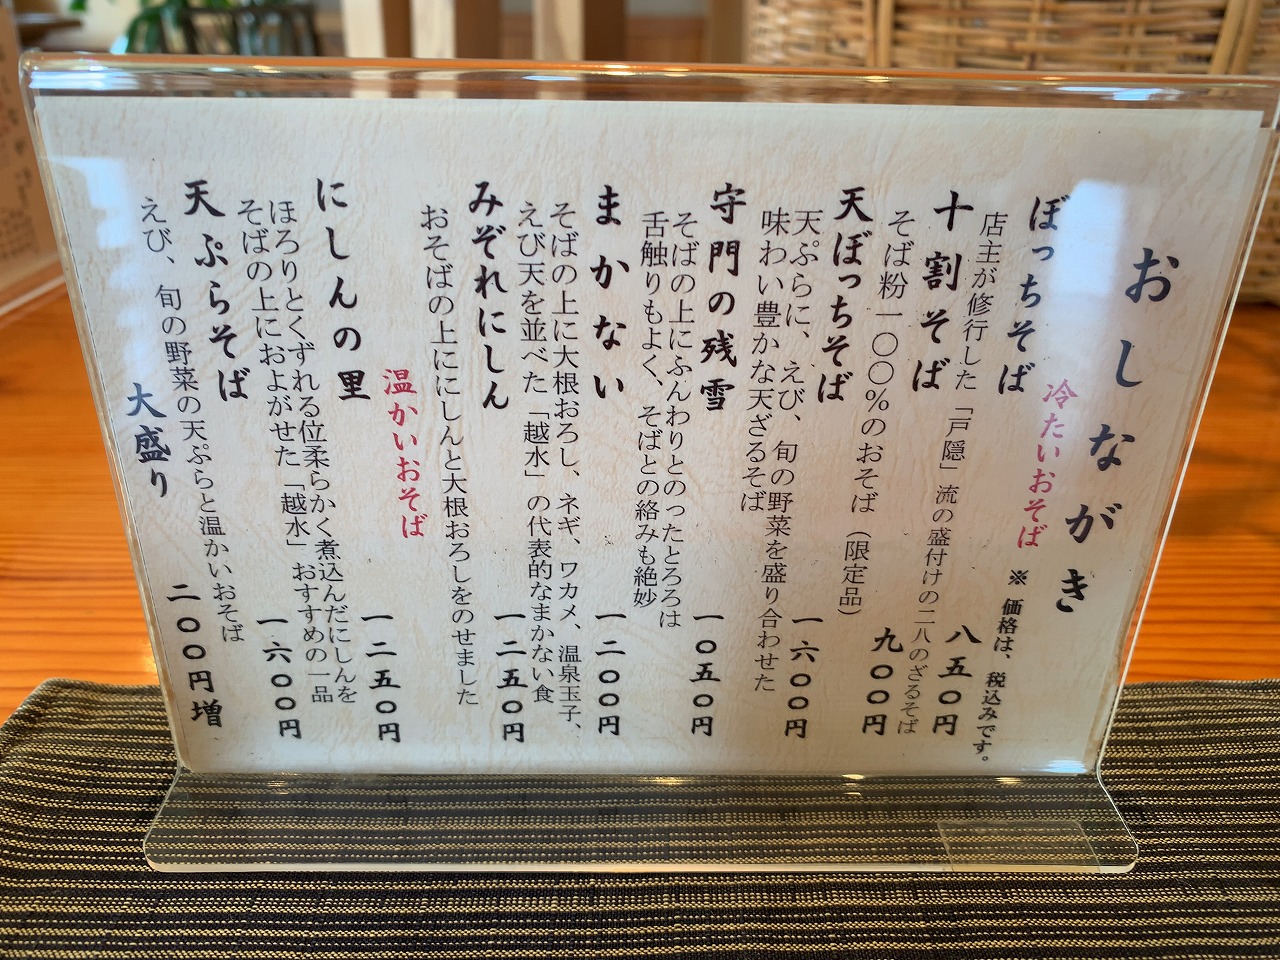 おしながき
冷たいおそば
※ 価格は、税込みです。
ぼっちそば 八五〇円
店主が修行した「戸隠」流の盛付けの二八のざるそば
十割そば 九〇〇円
そば粉一〇〇%のおそば(限定品)
天ぼっちそば 一六〇〇円
天ぷらに、えび、旬の野菜を盛り合わせた
味わい豊かな天ざるそば
守門の残雪 一〇五〇円
そばの上にふんわりとのったとろろは
舌触りもよく、そばとの絡みも絶妙
まかない 一二〇〇円
そばの上に大根おろし、ネギ、ワカメ、温泉玉子、
えび天を並べた「越水」の代表的なまかない食
みぞれにしん 一二五〇円
おそばの上ににしんと大根おろしをのせました
温かいおそば
にしんの里 一二五〇円
ほろりとくずれる位柔らかく煮込んだにしんを
そばの上におよがせた「越水」おすすめの一品
天ぷらそば 一六〇〇円
えび、旬の野菜の天ぷらと温かいおそば
大盛り 二〇〇円増